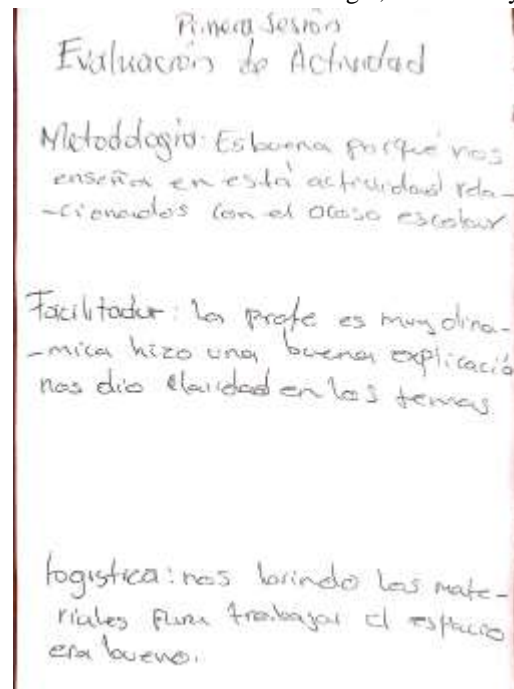 Primera Sesión
Evaluación de Actividad
Metodología: Es buena porqué nos
enseña en está actividad rela-
-cionados con el acoso escolar
Facilitador: la profe es muy dina-
-mica hizo una buena explicació
nos dio claridad en los temas
logistica: nos brindo los mate-
riales para trabajar el espacio
era bueno.